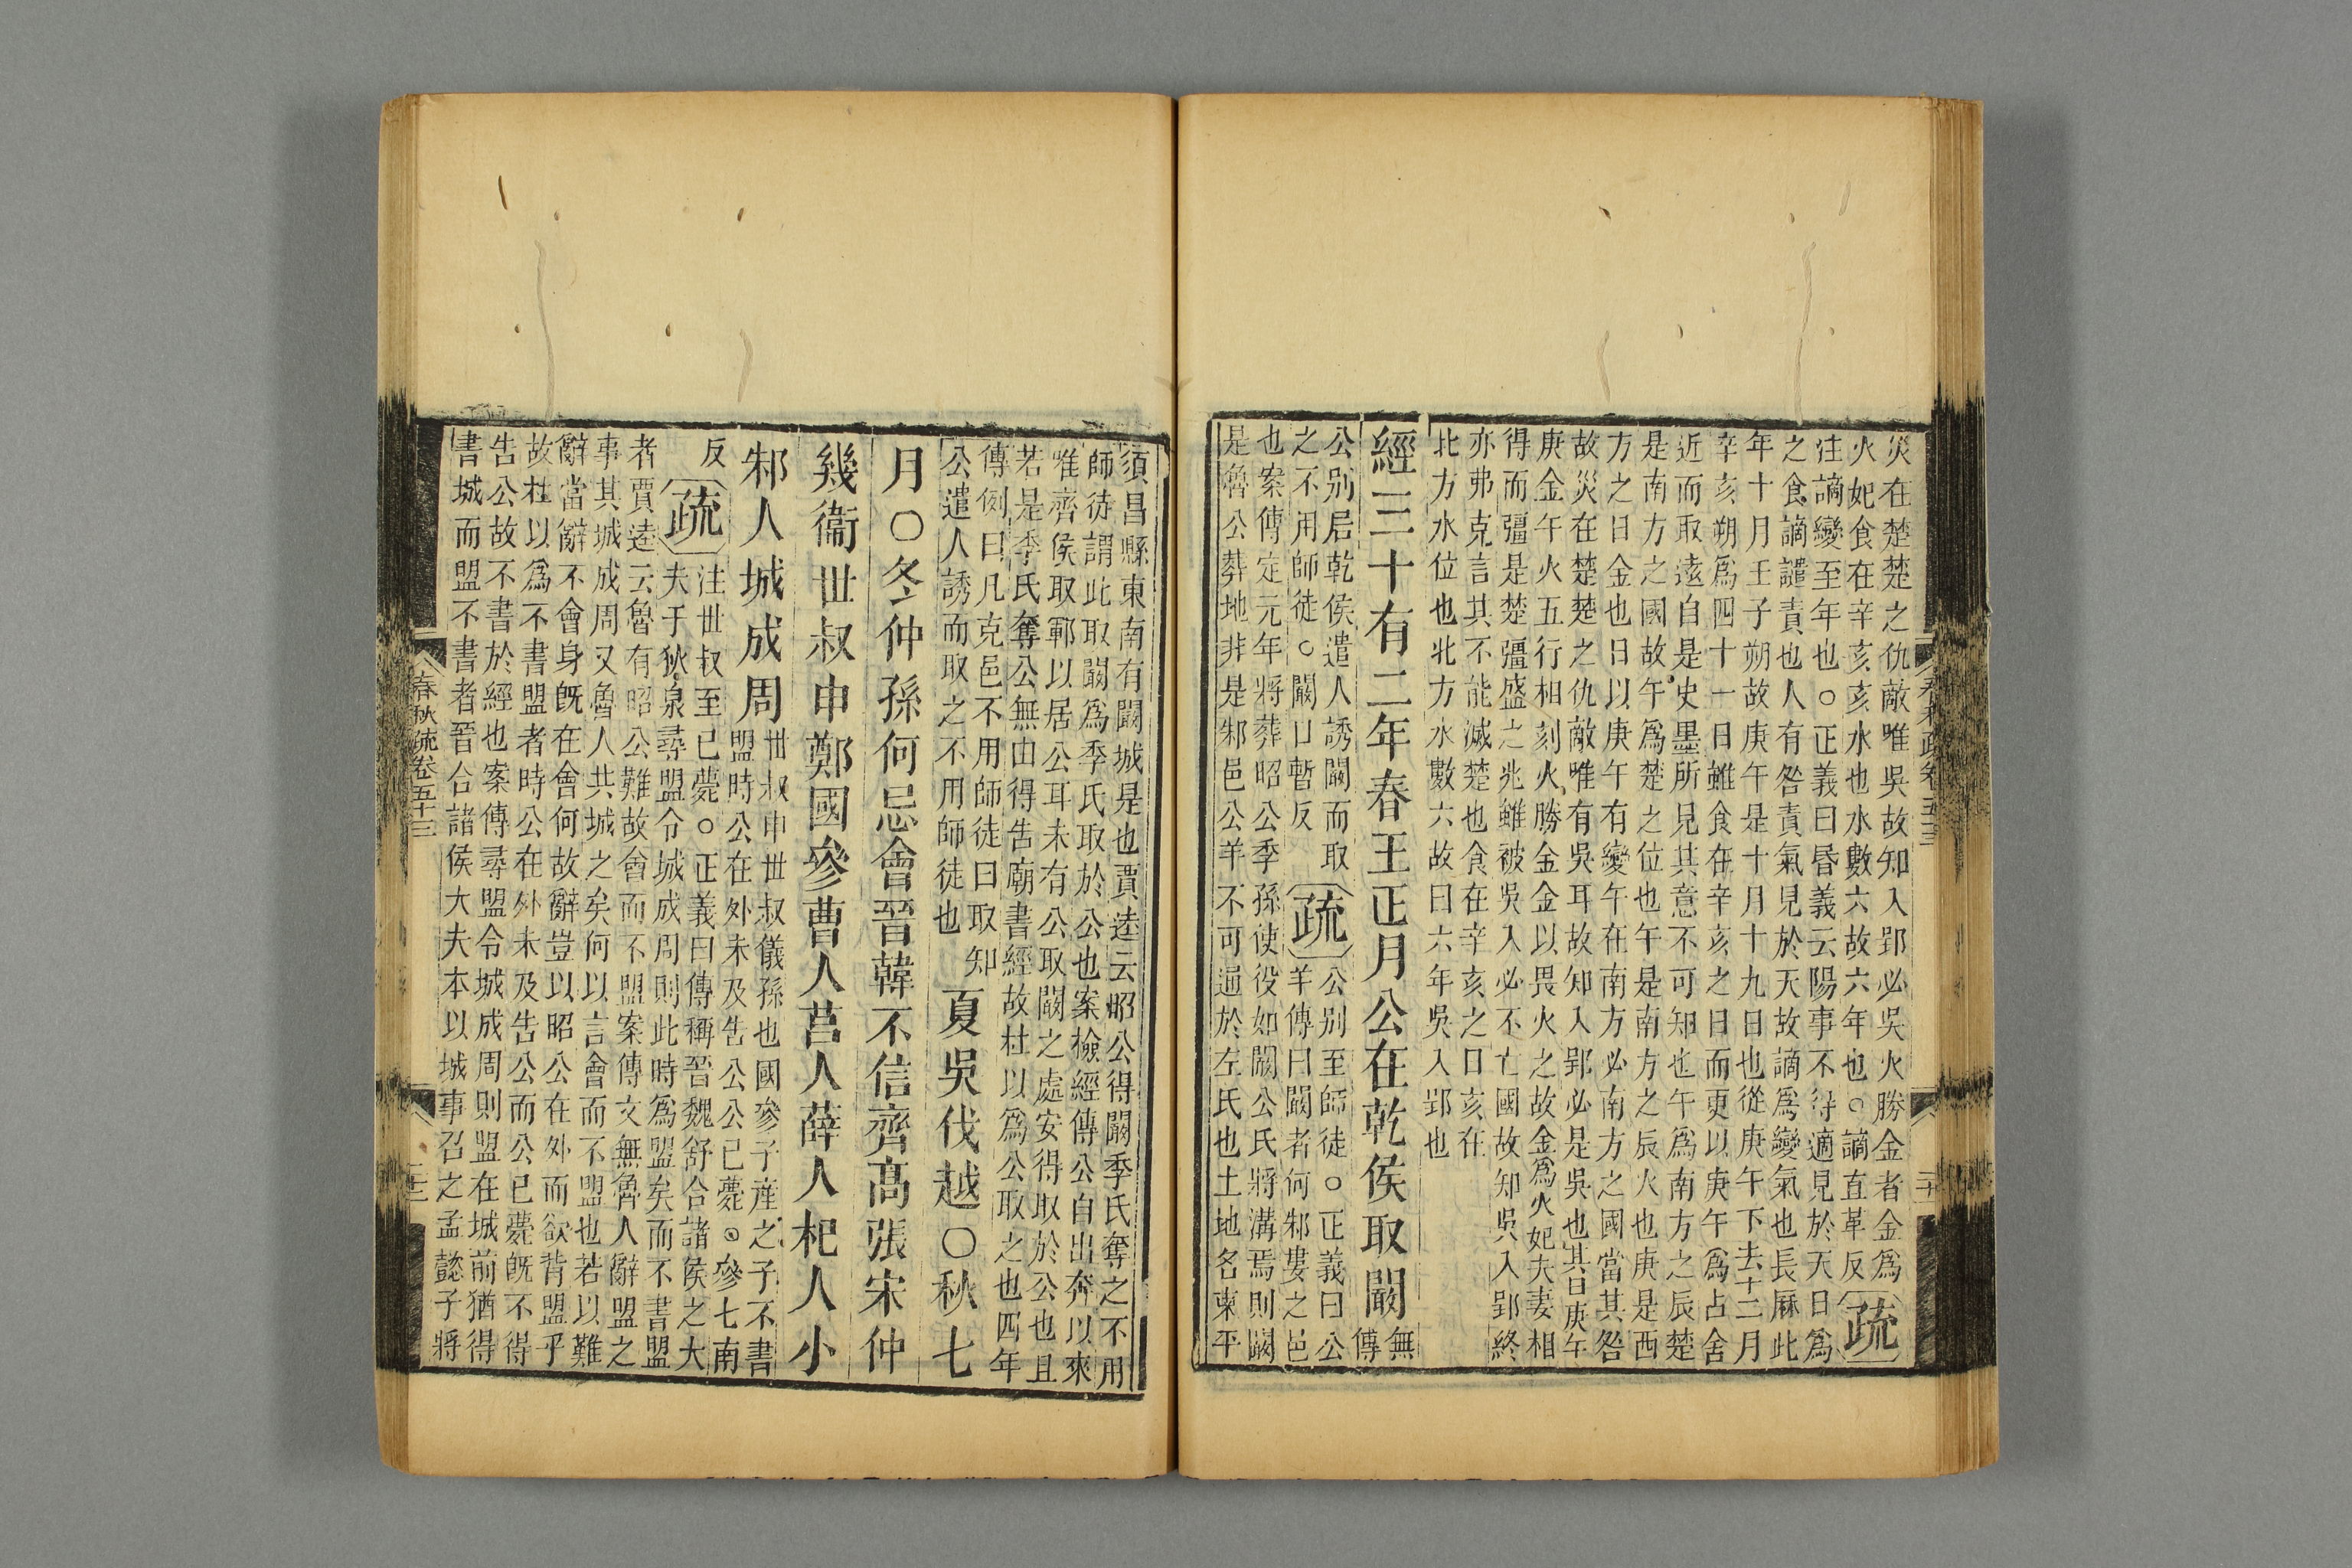 災在楚楚之仇敵唯吳故知入郢必吳火勝金者金爲
火妃食在辛亥亥水也水數六故六年也○謫直革反疏
注謫變至年也○正義曰昏義云陽事不得適見於天日爲
之食謫譴責也人有咎責氣見於天故謫爲變氣也長厤此
年十月壬子朔故庚午是十月十九日也從庚午下去十二月
辛亥朔爲四十一日雖食在辛亥之日而更以庚午爲占舍
近而取遠自是史墨所見其意不可知也午爲南方之辰楚
是南方之國故午爲楚之位也午是南方之辰火也庚是西
方之日金也日以庚午有變午在南方必南方之國當其咎
故災在楚楚之仇敵唯有吳耳故知入郢必是吳也其日庚午
庚金午火五行相刻火勝金金以畏火之故金爲火妃夫妻相
得而彊是楚彊盛之兆雖被吳入必不亡國故知吳入郢終
亦弗克言其不能滅楚也食在辛亥之日亥在
北方水位也北方水數六故曰六年吳入郢也
經三十有二年春王正月公在乾侯取闞無傳
公別居乾侯遣人誘闞而取
之不用師徒○闞口暫反疏公別至師徒○正義曰公
羊傳曰闞者何邾婁之邑
也案傳定元年將葬昭公季孫使役如闞公氏將溝焉則闞
是魯公葬地非是邾邑公羊不可通於左氏也土地名東平
春秋疏卷五十三
須昌縣東南有闞城是也賈逵云昭公得闞季氏奪之不用
師徒謂此取闞爲季氏取於公也案檢經傳公自出奔以來
唯齊侯取鄆以居公耳未有公取闞之處安得取於公也且
若是季氏奪公無由得告廟書經故杜以爲公取之也四年
傳例曰凡克邑不用師徒曰取知
公遣人誘而取之不用師徒也夏吳伐越○秋七
月○冬仲孫何忌會晉韓不信齊高張宋仲
幾衞世叔申鄭國參曹人莒人薛人杞人小
邾人城成周世叔申世叔儀孫也國參子產之子不書
盟時公在外未及告公公已薨○參七南
反疏注世叔至已薨○正義曰傳稱晉魏舒合諸侯之大
夫于狄泉尋盟令城成周則此時爲盟矣而不書盟
者賈逵云魯有昭公難故會而不盟案傳文無魯人辭盟之
事其城成周又魯人共城之矣何以言會而不盟也若以難
辭當辭不會身旣在會何故辭豈以昭公在外而欲背盟乎
故杜以爲不書盟者時公在外未及告公而公已薨旣不得
告公故不書於經也案傳尋盟令城成周則盟在城前猶得
書城而盟不書者晉合諸侯大夫本以城事召之孟懿子將
春秋疏卷五十三